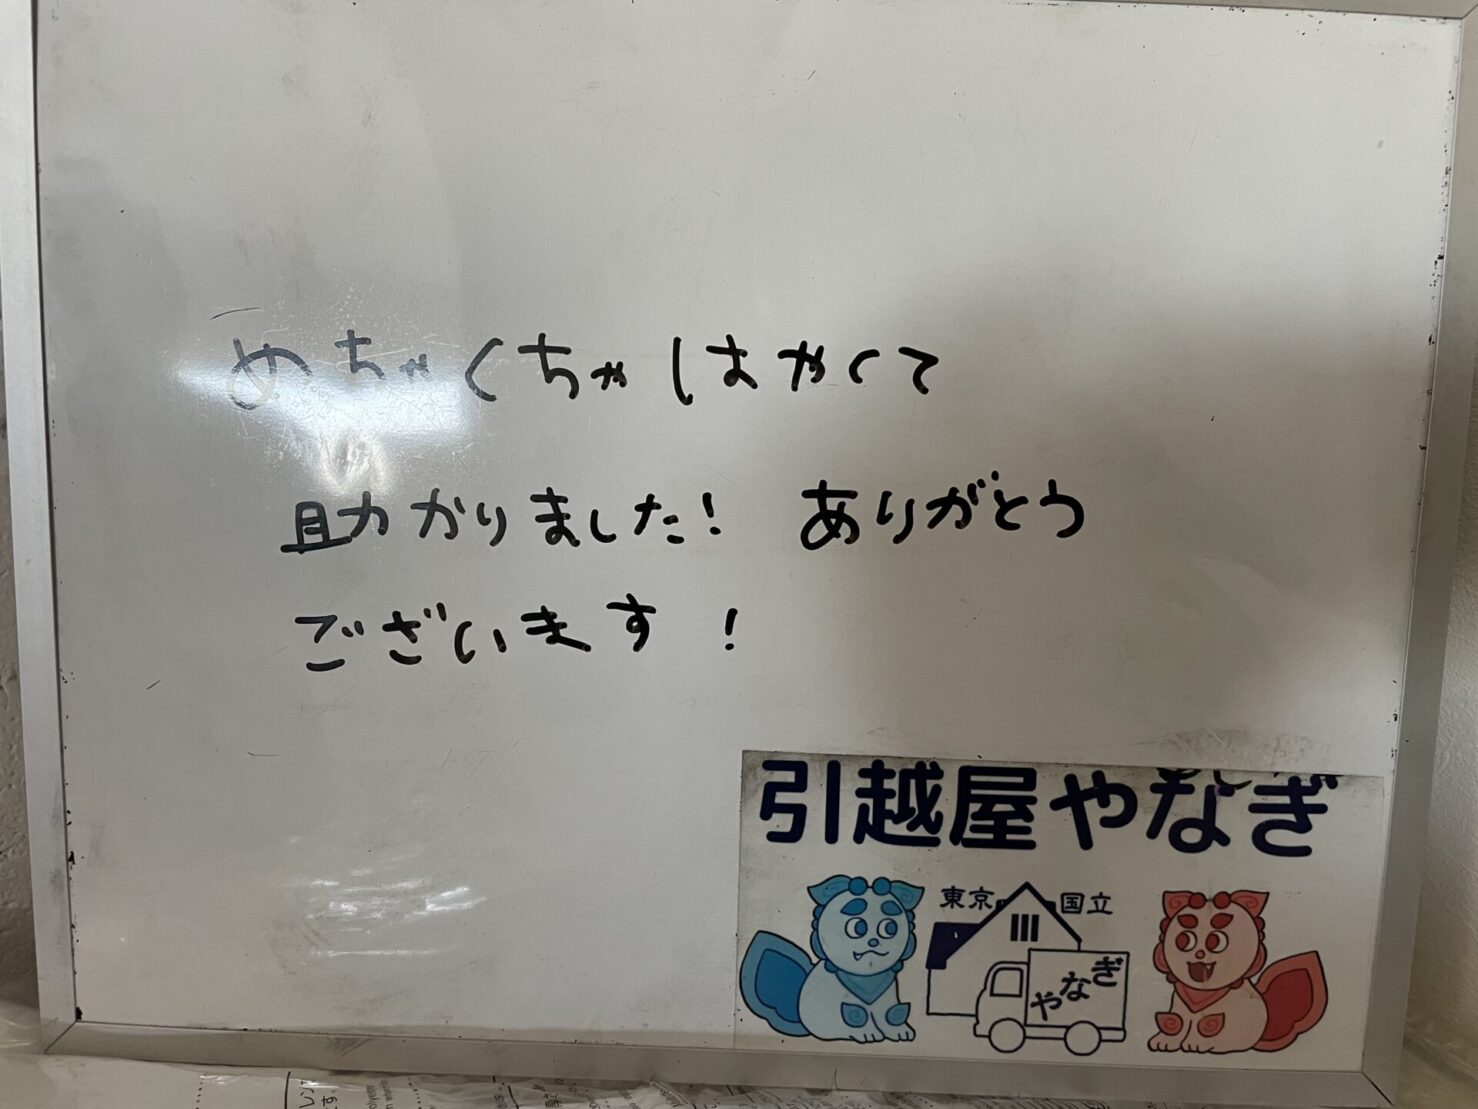 めちゃくちゃはやくて
助かりました! ありがとう
ございます!
引越屋やなぎ
東京 国立
やなぎ